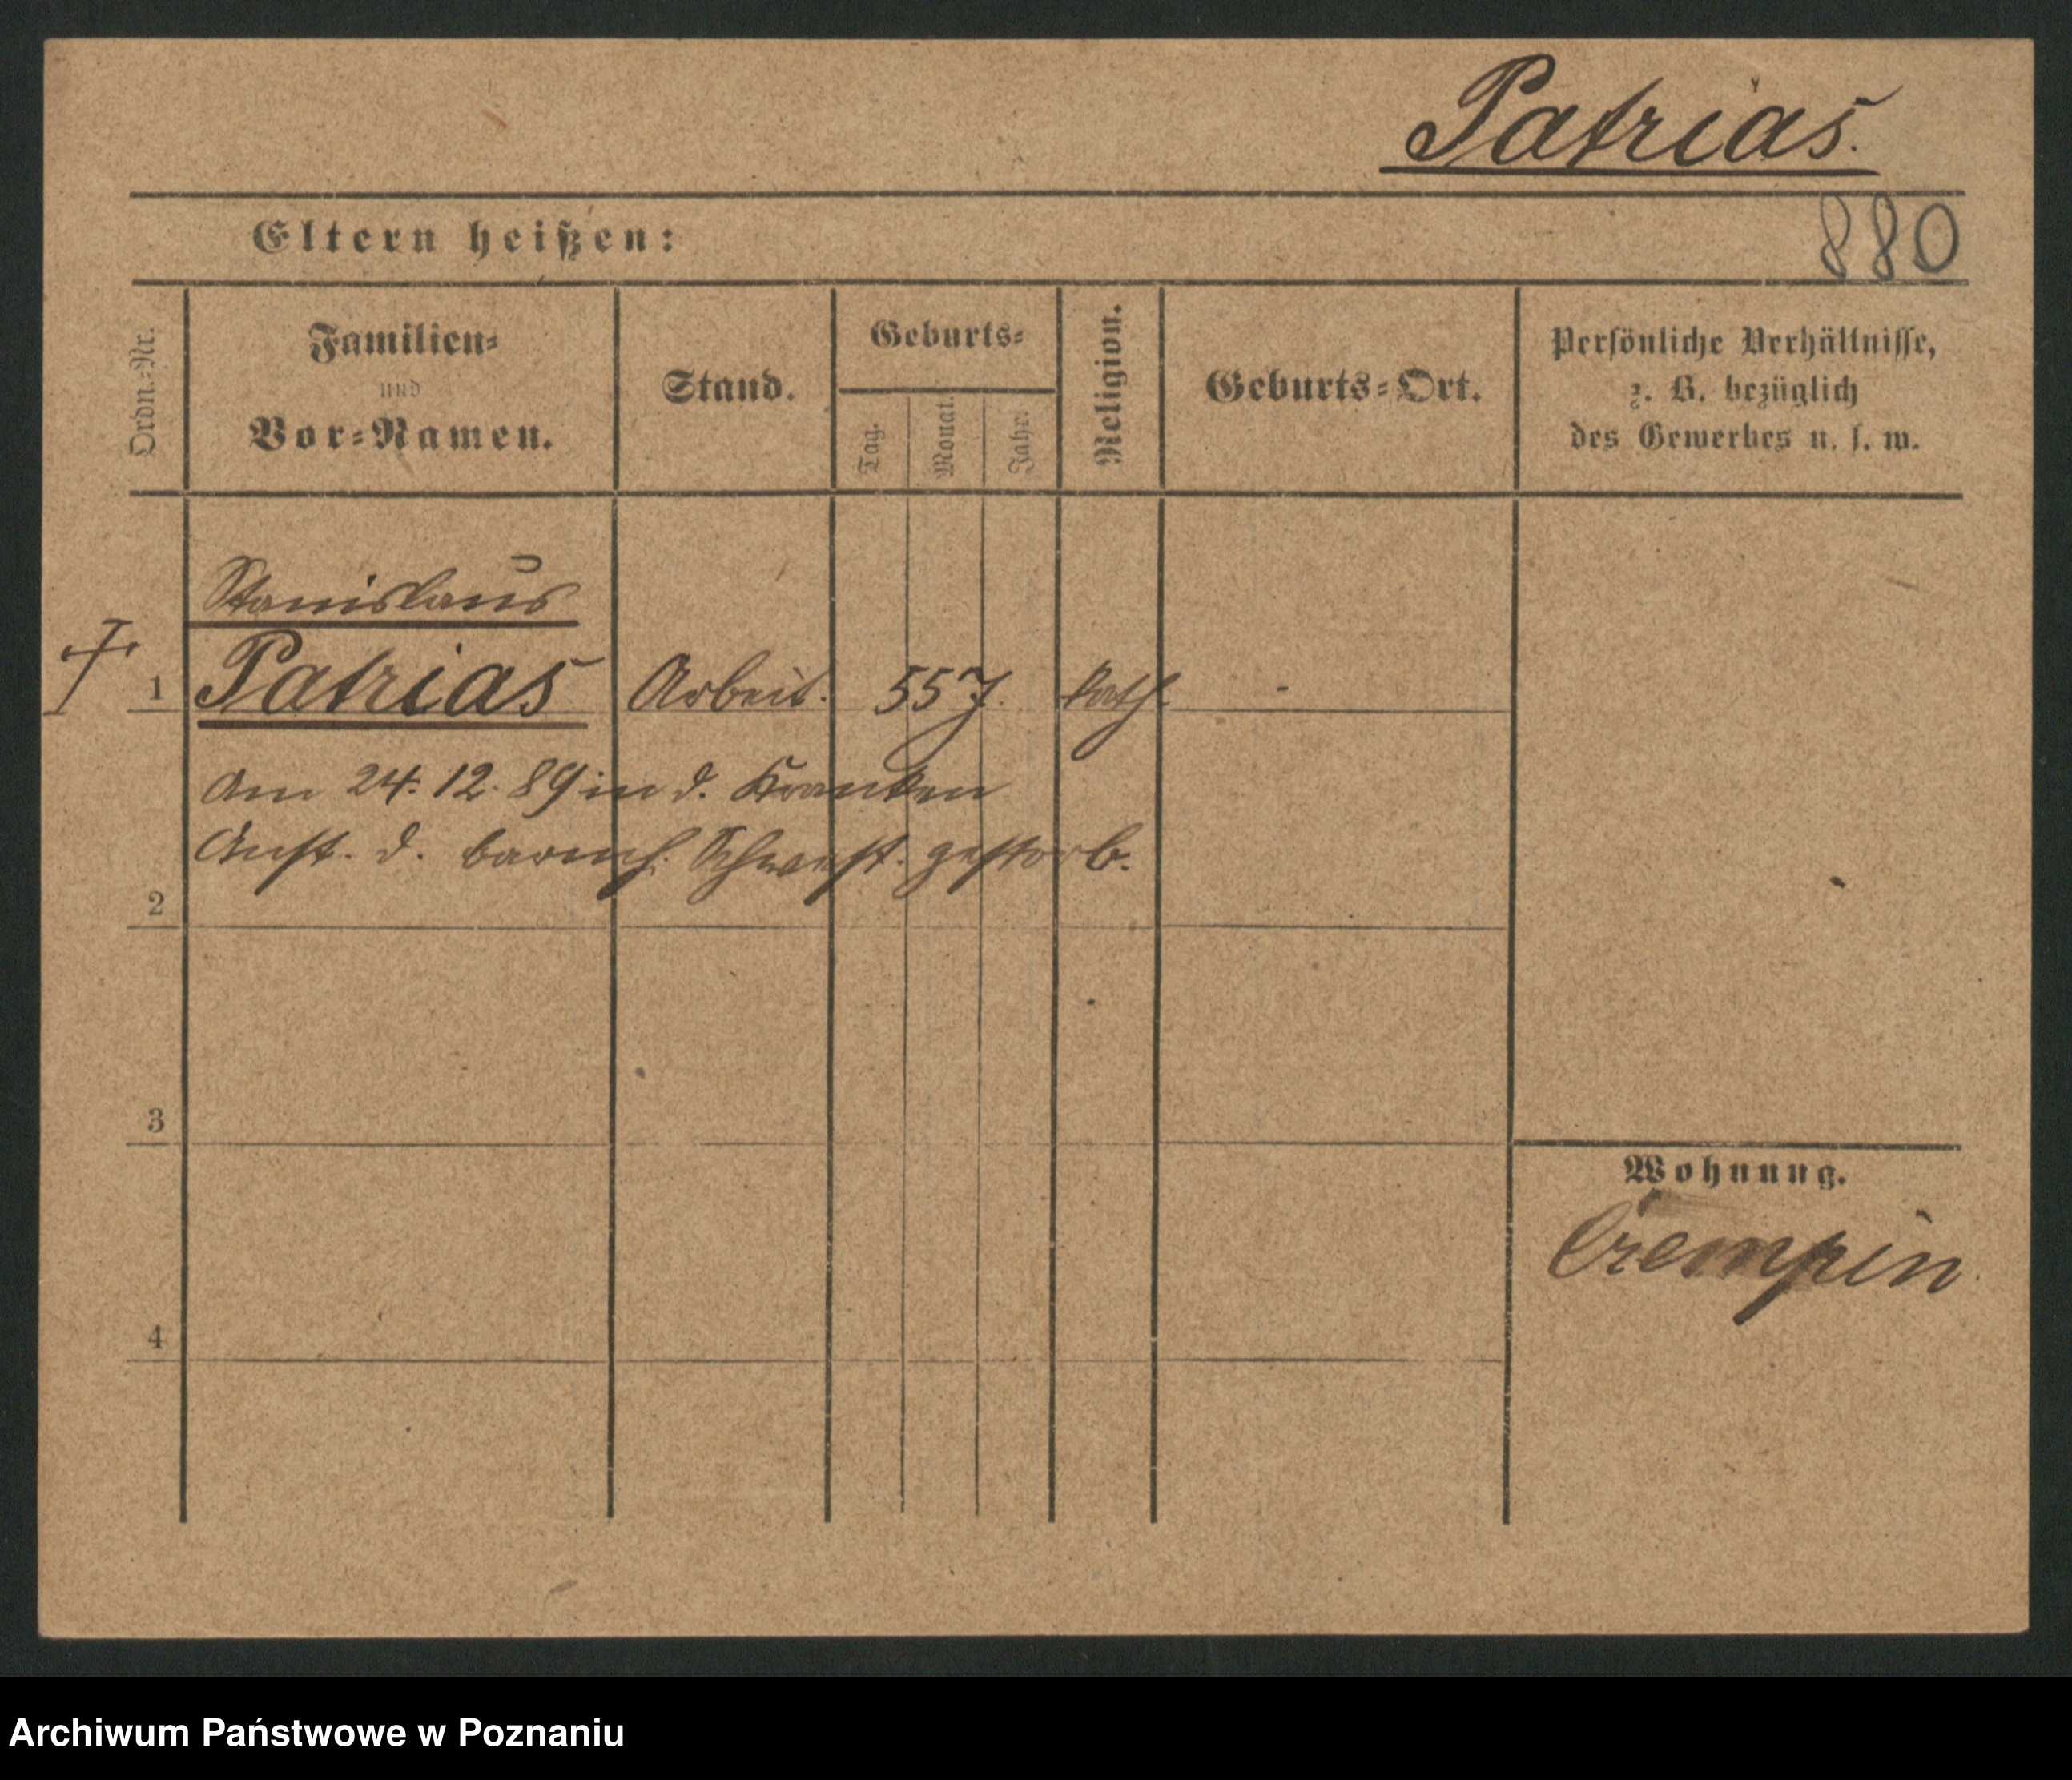 Patrias.
880
Eltern heißen:
Ordn.-Nr.
Familien-
und
Vor-Namen.
Stand.
Geburts-
Tag.
Monat.
Jahr.
Religion.
Geburts-Ort.
Persönliche Verhältnisse,
z. B. bezüglich
des Gewerbes u. s. w.
Stanislaus
1 Patrias Arbeit. 55 J. kath. -
Am 24. 12. 89 in d. Kranken
Anst. d. barmh. Schwest. gestorb.
2
3
Wohnung.
Czempin
4
Archiwum Państwowe w Poznaniu